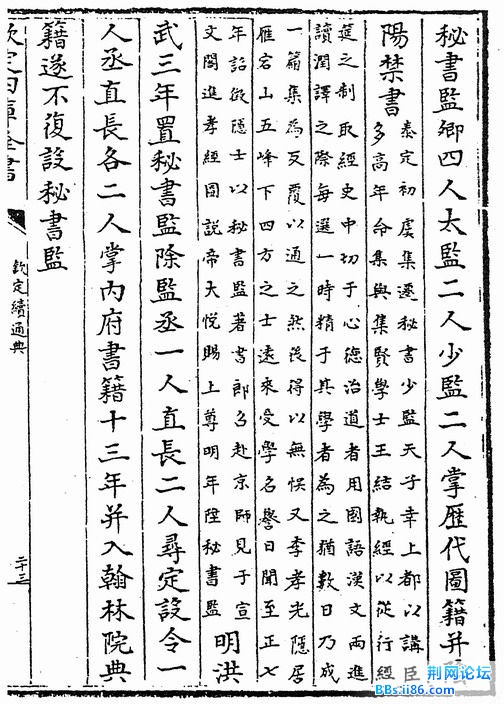 秘書監卿四人太監二人少監二人掌歷代圖籍并
陽禁書
泰定初虞集遷秘書少監天子幸上都以講臣
多高年命集與集賢學士王結執經以從行經
筵之制取經史中切于心德治道者用國語漢文兩進
讀潤譯之際每選一時精于其學者為之猶數日乃成
一篇集為反覆以通之然後得以無悞又李孝光隱居
雁宕山五峰下四方之士遠來受學名譽日聞至正七
年詔徵隱士以秘書監著書郎召赴京師見于宣
文閣進孝經圖說帝大悅賜上尊明年陞秘書監
明洪
武三年置秘書監除監丞一人直長二人尋定設令一
人丞直長各二人掌內府書籍十三年并入翰林院典
籍遂不復設秘書監
欽定四庫全書
欽定續通典
二十三
荆网论坛
BBs.ii86.com